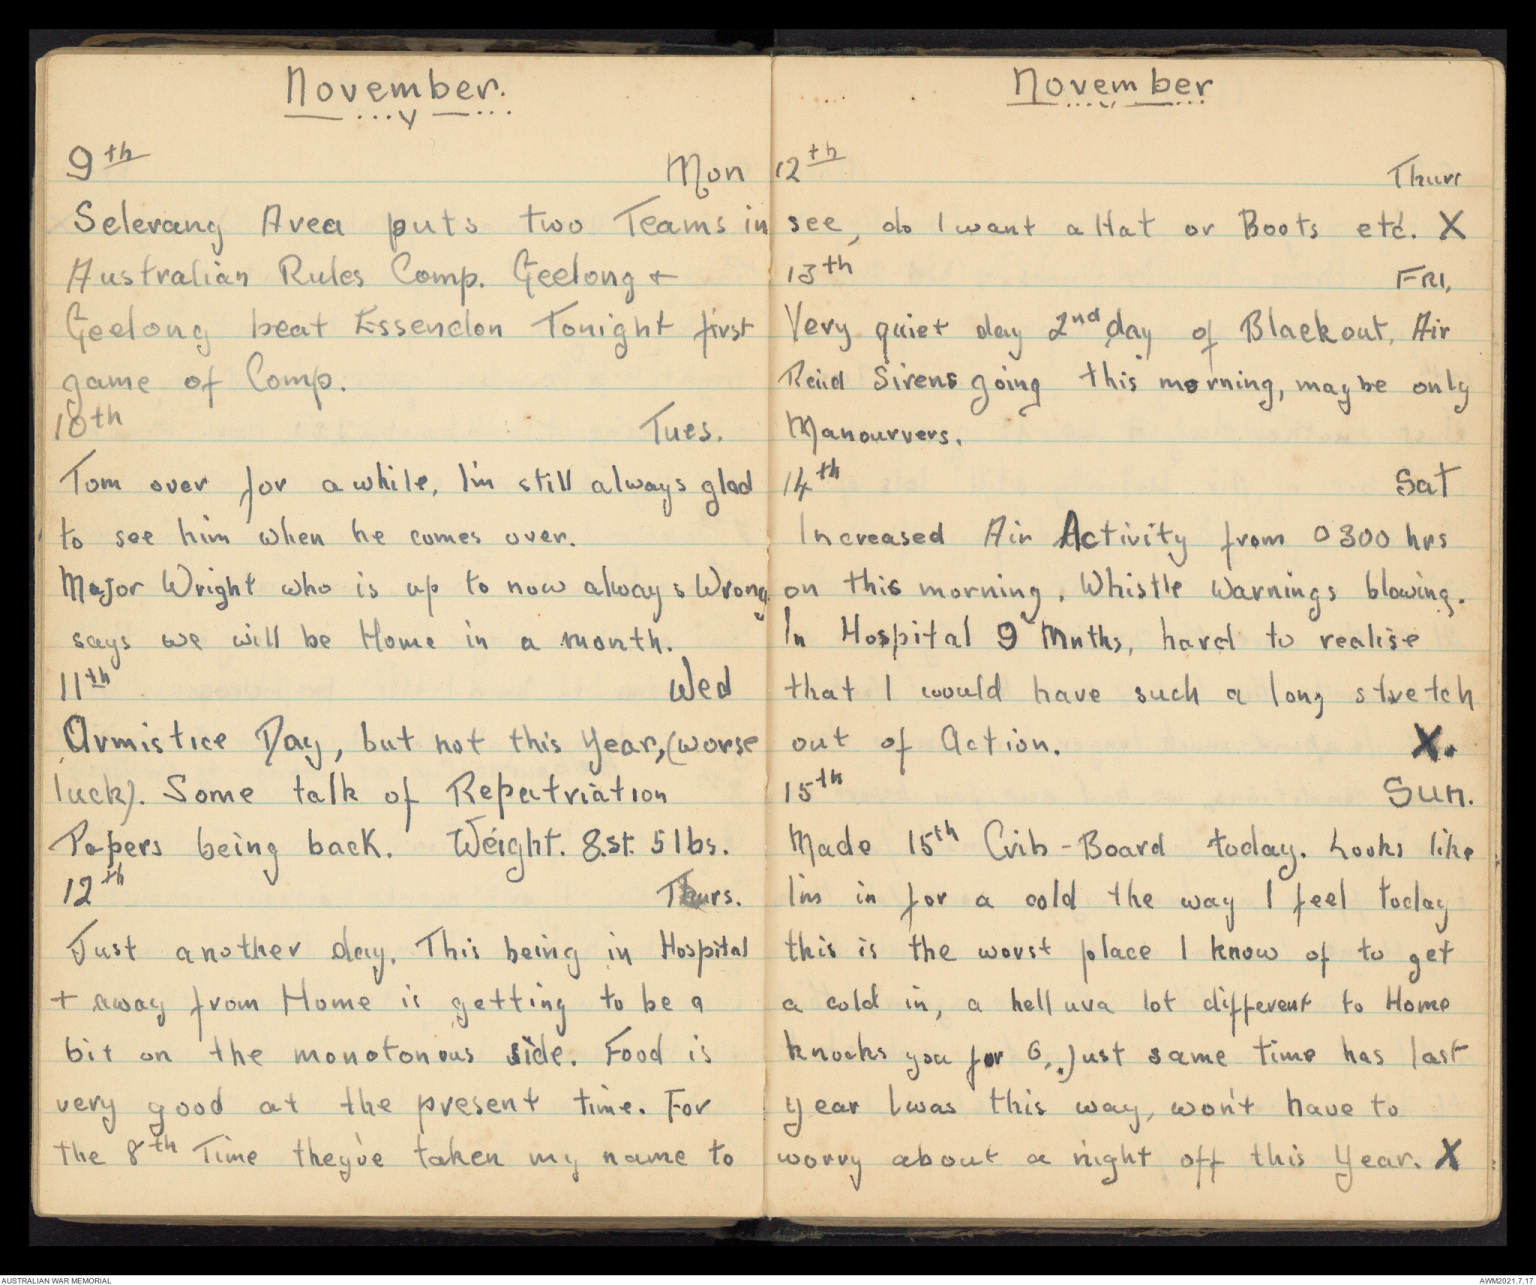 November.
9th Mon
Selerang Area puts two Teams in
Australian Rules Comp. Geelong +
Geelong beat Essendon Tonight first
game of Comp.
10th Tues.
Tom over for a while, I'm still always glad
to see him when he comes over.
Major Wright who is up to now always Wrong
says we will be Home in a month.
11th Wed
Armistice Day, but not this Year, (worse
luck). Some talk of Repatriation
Papers being back. Weight. 8.st. 5 lbs.
12th Thurs.
Just another day. This being in Hospital
+ away from Home is getting to be a
bit on the monotonous side. Food is
very good at the present time. For
the 8th Time they've taken my name to
November
12th Thurs
see, do I want a Hat or Boots etc. X
13th FRI,
Very quiet day 2nd day of Blackout, Air
Raid Sirens going this morning, maybe only
Manourvers.
14th Sat
Increased Air Activity from 0300 hrs
on this morning, Whistle Warnings blowing.
In Hospital 9 Mnths, hard to realise
that I would have such a long stretch
out of Action. X.
15th Sun.
Made 15th Crib-Board today. Looks like
I'm in for a cold the way I feel today
this is the worst place I know of to get
a cold in, a helluva lot different to Home
knocks you for 6, Just same time has last
year I was this way, won't have to
worry about a night off this Year. X
AUSTRALIAN WAR MEMORIAL
AWM2021.7.17